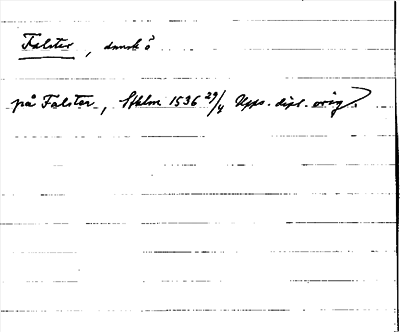 Falster, dansk ö
på Falster, Sthlm 1536 29/4 Upps. dipl. orig.